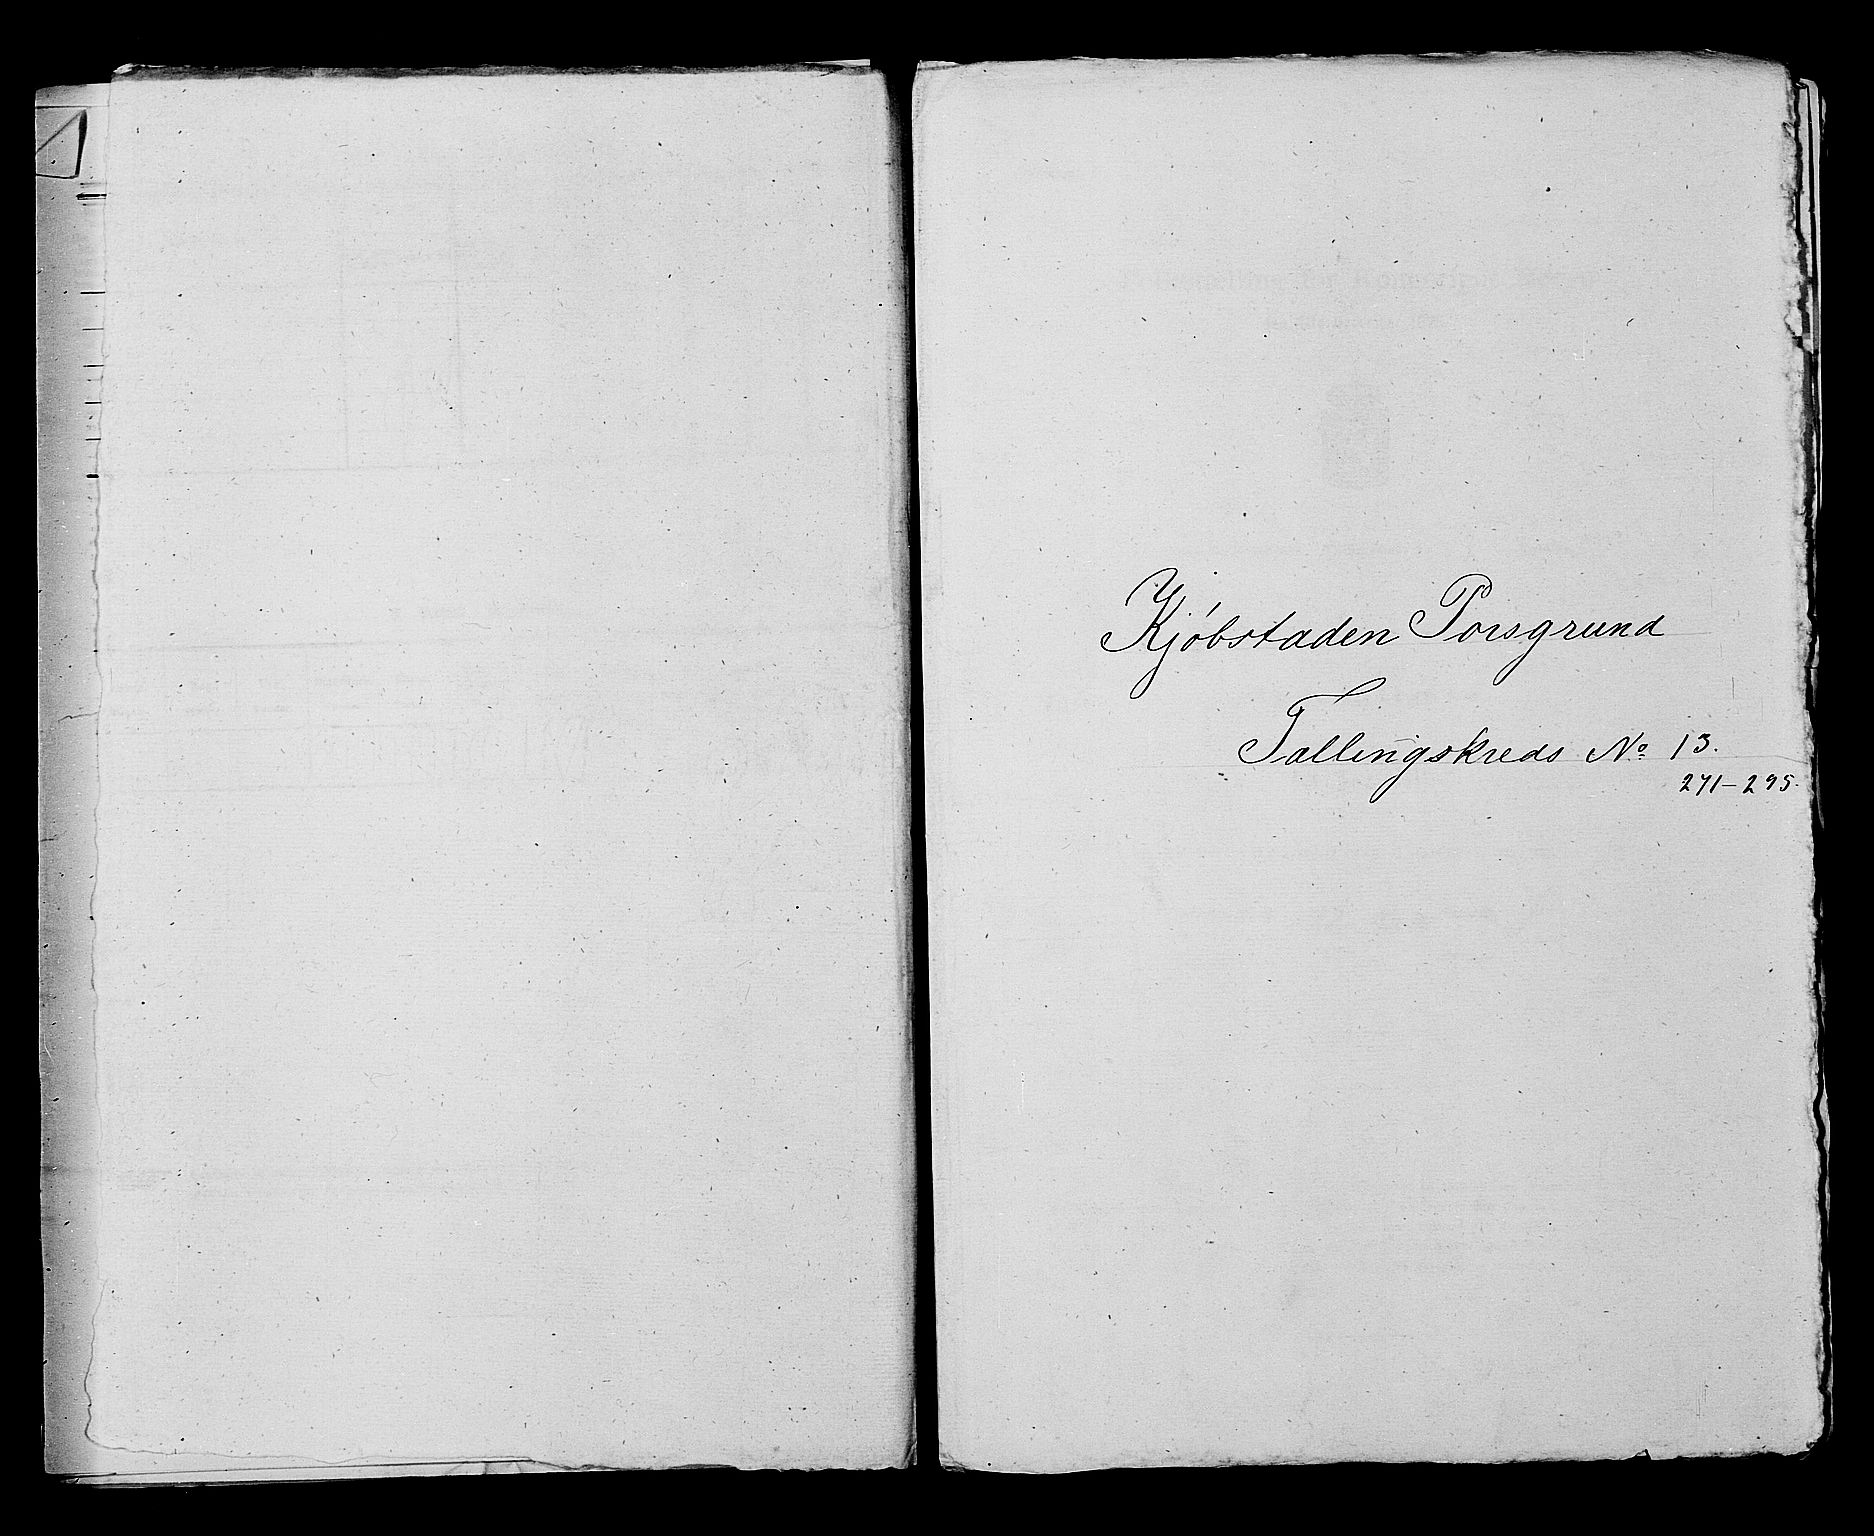 Kjøbstaden Porsgrund
Tællingskreds No 13.
271-295.